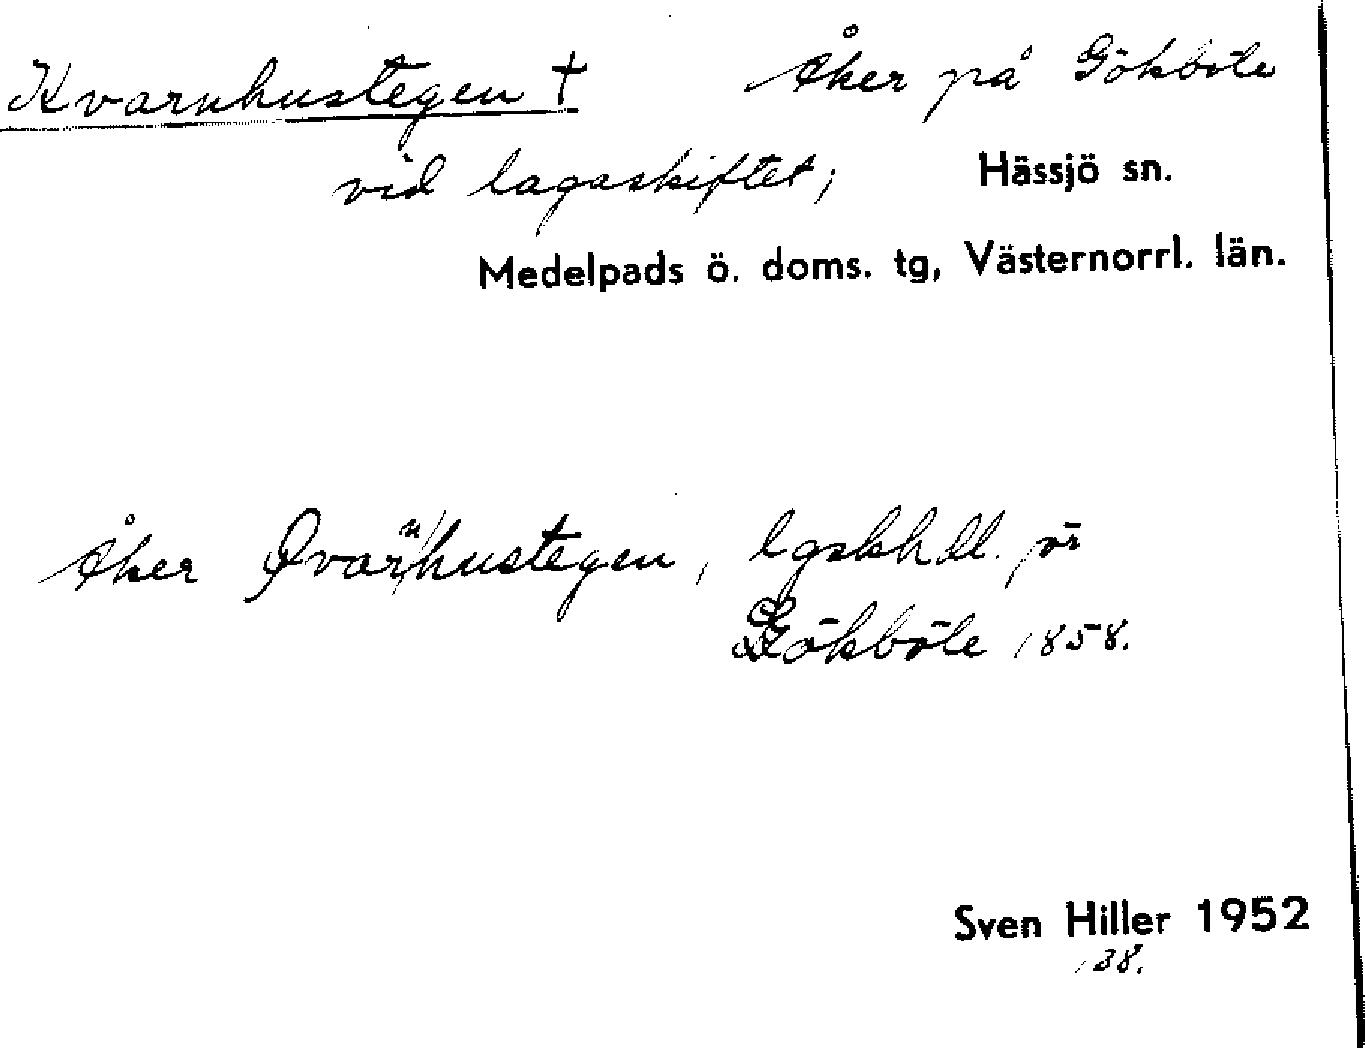 Kvarnhustegen † Åker på Gökböle
vid lagaskiftet; Hässjö sn.
Medelpads ö. doms. tg, Västernorrl. län.
Åker Qvarnhustegen, lgskhdl. på
Gökböle 1858.
Sven Hiller 1952
138.